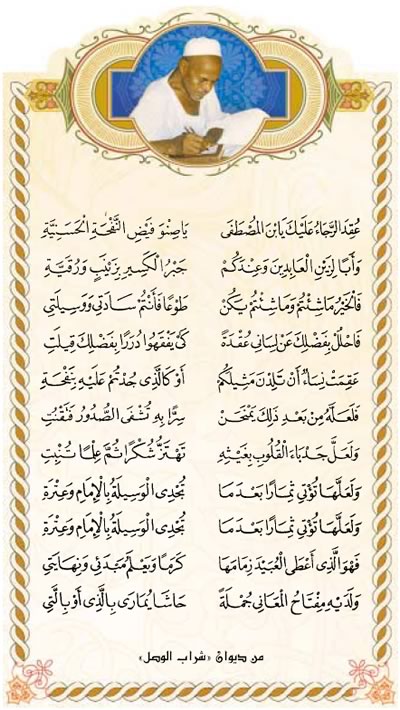 عُقِدَ الرَّجَاءُ عَلَيْكَ يَا ابْنَ المُصْطَفَى يَا صِنْوَ فَيْضِ النَّفْحَةِ الْحَسَنِيَّةِ
وَأَبًا لِزَيْنِ الْعَابِدِينَ وَعِنْدَكُمْ جَبْرُ الْكَسِيرِ بِزَيْنَبٍ وَرُقَيَّةِ
فَالْخَيْرُ مَا شِئْتُمْ وَمَا شِئْتُمْ يَكُنْ طَوْعًا فَأَنْتُمْ سَادَتِي وَوَسِيلَتِي
فَاحْلُلْ بِفَضْلِكَ عَنْ لِسَانِي عُقْدَةً كَىْ يَفْقَهُوا دُرَرًا بِفَضْلِكَ قِيلَتِ
عَقِمَتْ نِسَاءٌ أَنْ تَلِدْنَ مَثِيلَكُمْ أَوْ كَالَّذِي جُدْتُمْ عَلَيْهِ بِنَفْحَةِ
فَلَعَلَّهُ مِنْ بَعْدِ ذَلِكَ يَمْنَحَنْ سِرًّا بِهِ تُشْفَى الصُّدُورُ فَقُنِّتِ
وَلَعَلَّ جَدْبَاءَ الْقُلُوبِ بِغَيْثِهِ تَهْتَزُّ شُكْرًا ثُمَّ عِلْمًا تُنْبِتِ
وَلَعَلَّهَا تُؤْتِي ثِمَارًا بَعْدَمَا تُجْدِى الْوَسِيلَةُ بِالْإِمَامِ وَعِتْرَةِ
وَلَعَلَّهَا تُؤْتِي ثِمَارًا بَعْدَمَا تُجْدِى الْوَسِيلَةُ بِالْإِمَامِ وَعِتْرَةِ
فَهْوَ الَّذِي أَعْطَى الْعُبَيْدَ زِمَامَهَا كَرَمًا وَيَعْلَمُ مَبْدَئِي وَنِهَايَتِي
وَلَدَيْهِ مِفْتَاحُ الْمَعَانِي جُمْلَةً حَاشَا يُمَارَى بِالَّذِي أَوْ بِالَّتِي
من ديوان «شراب الوصل»